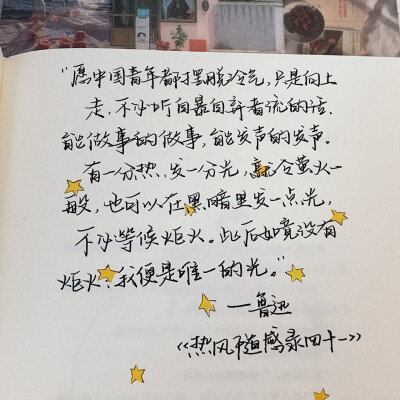 “愿中国青年都摆脱冷气，只是向上
走，不必听自暴自弃者流的话．
能做事的做事，能发声的发声。
有一分热，发一分光，就令萤火一
般，也可以在黑暗里发一点光，
不必等候炬火。此后如竟没有
炬火：我便是唯一的光。”
—鲁迅
《热风·随感录四十一》